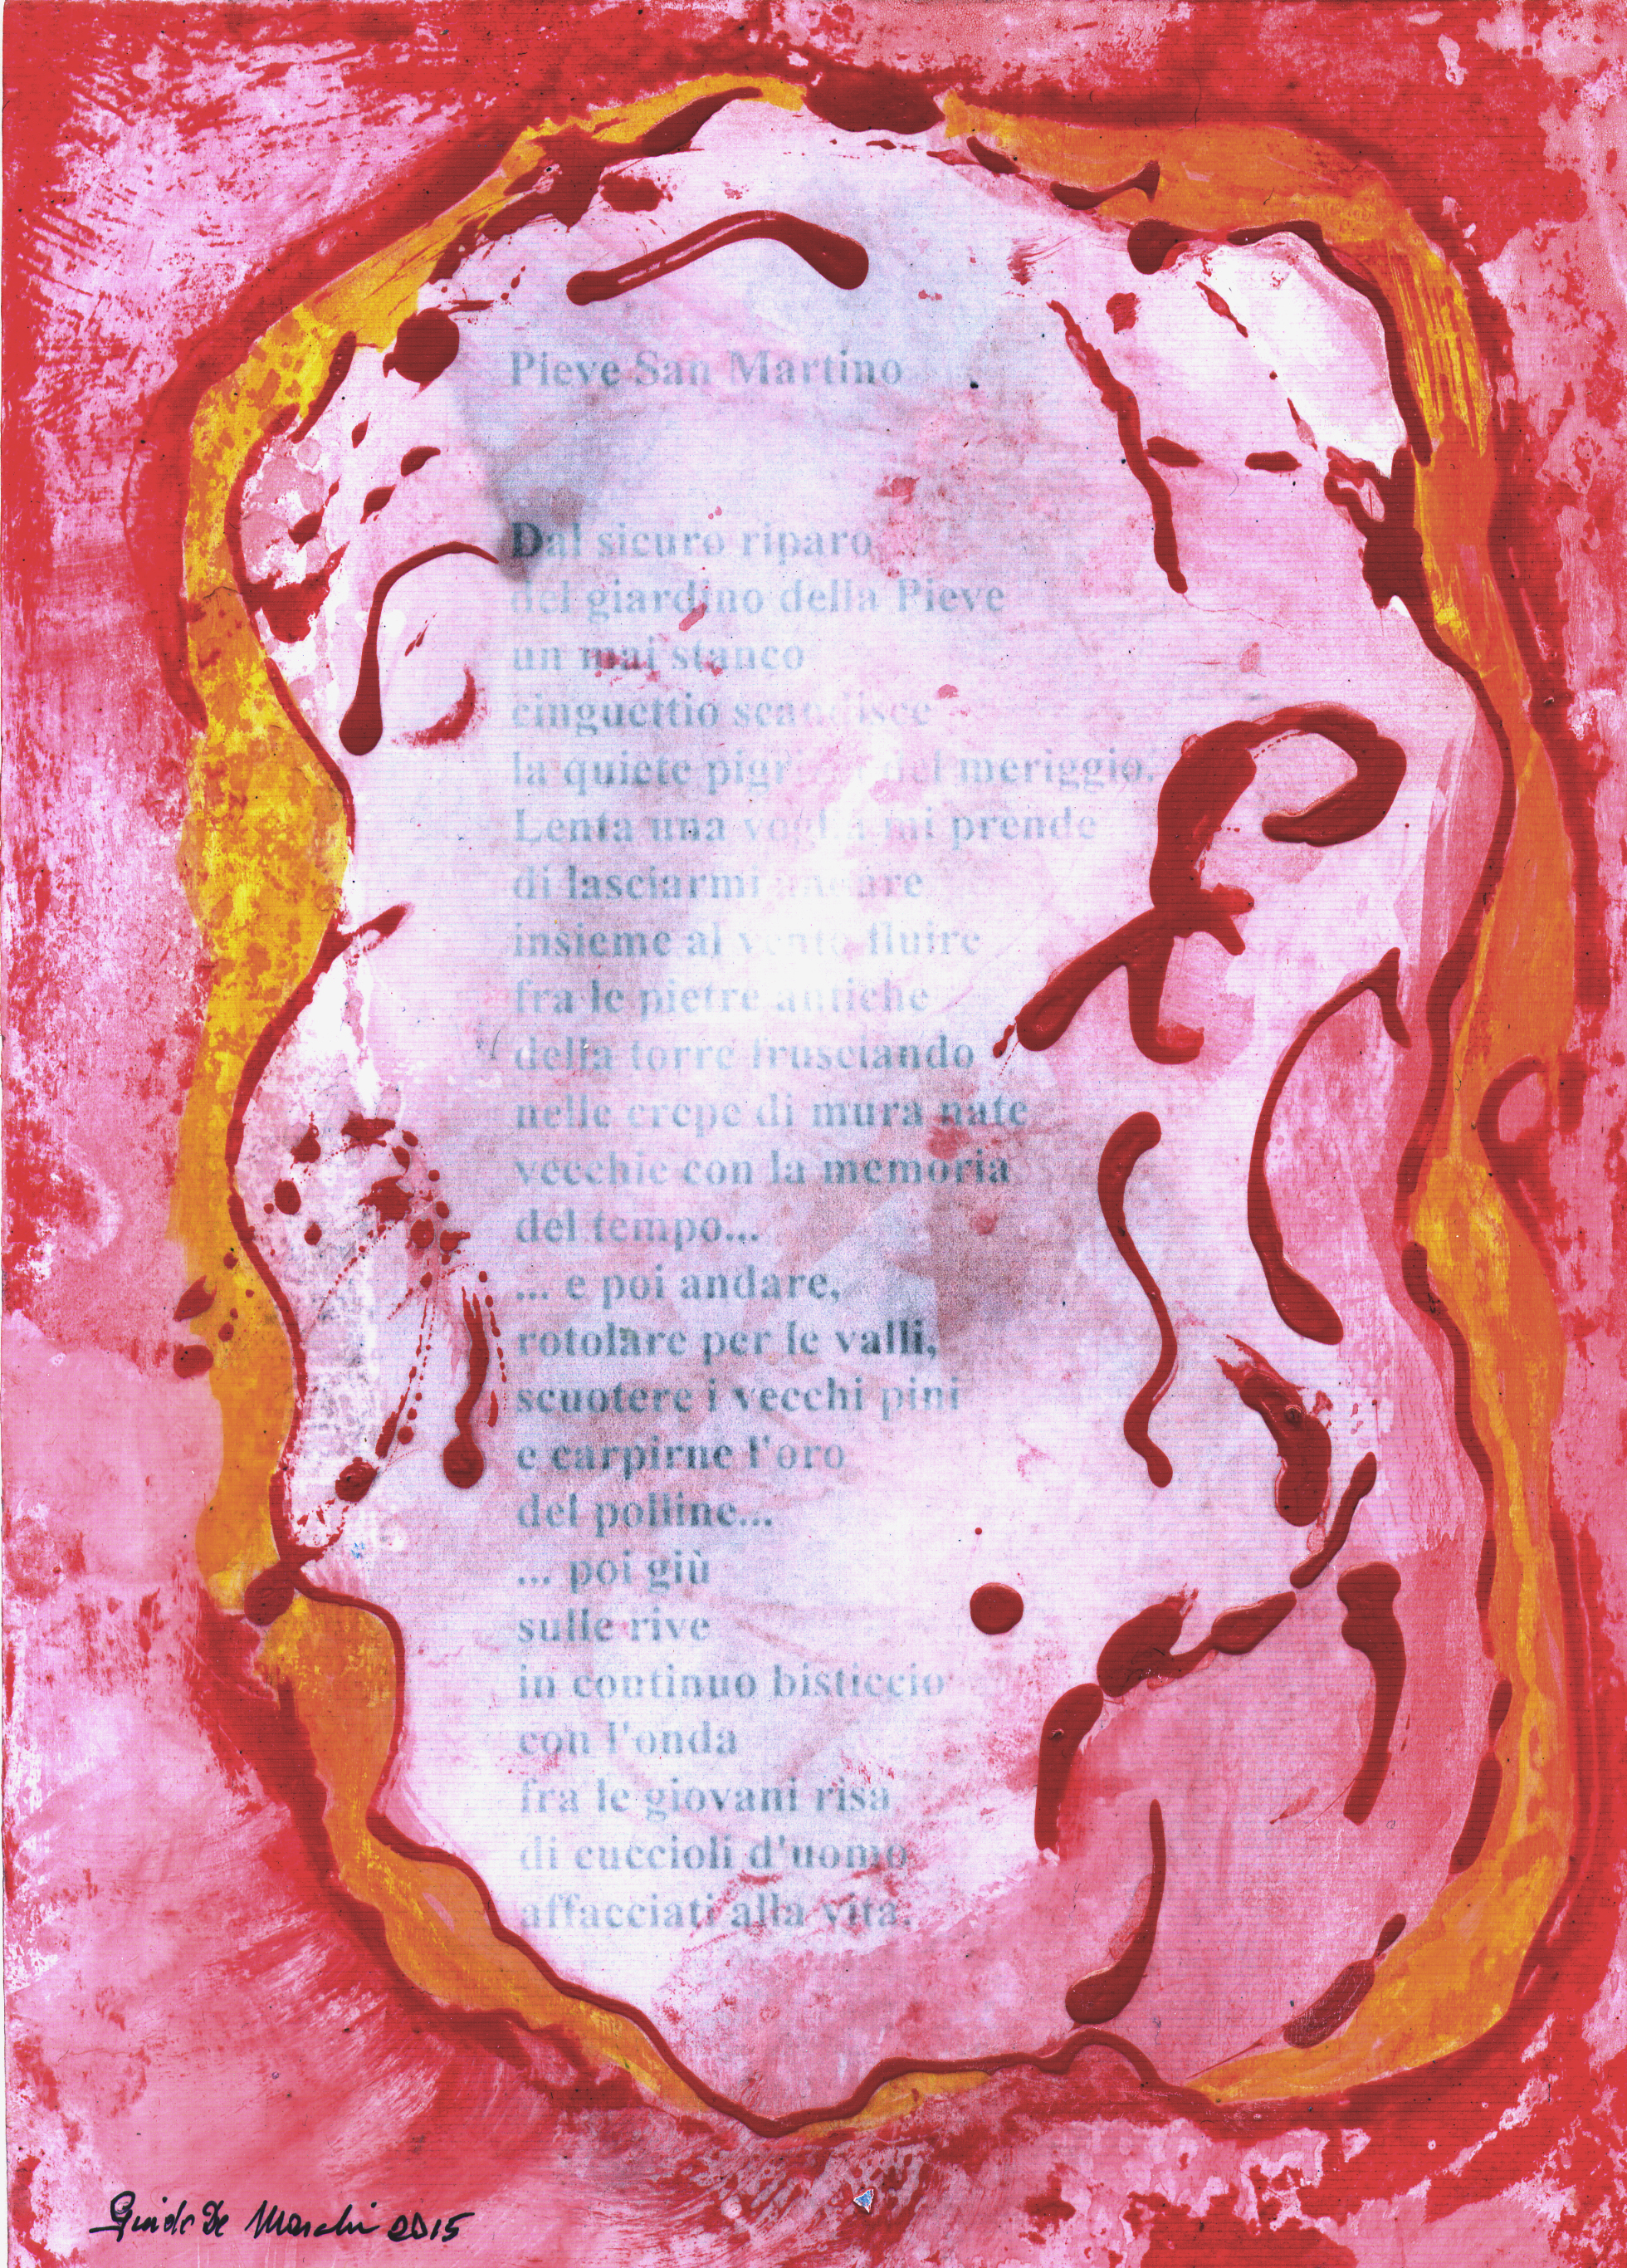 Pieve San Martino
Dal sicuro riparo
del giardino della Pieve
un mai stanco
cinguettio scandisce
la quiete pigrizia del meriggio.
Lenta una voglia mi prende
di lasciarmi andare
insieme al vento fluire
fra le pietre antiche
della torre frusciando
nelle crepe di mura nate
vecchie con la memoria
del tempo...
... e poi andare,
rotolare per le valli,
scuotere i vecchi pini
e carpirne l'oro
del polline...
... poi giù
sulle rive
in continuo bisticcio
con l'onda
fra le giovani risa
di cuccioli d'uomo
affacciati alla vita.
Guido De Marchi 2015